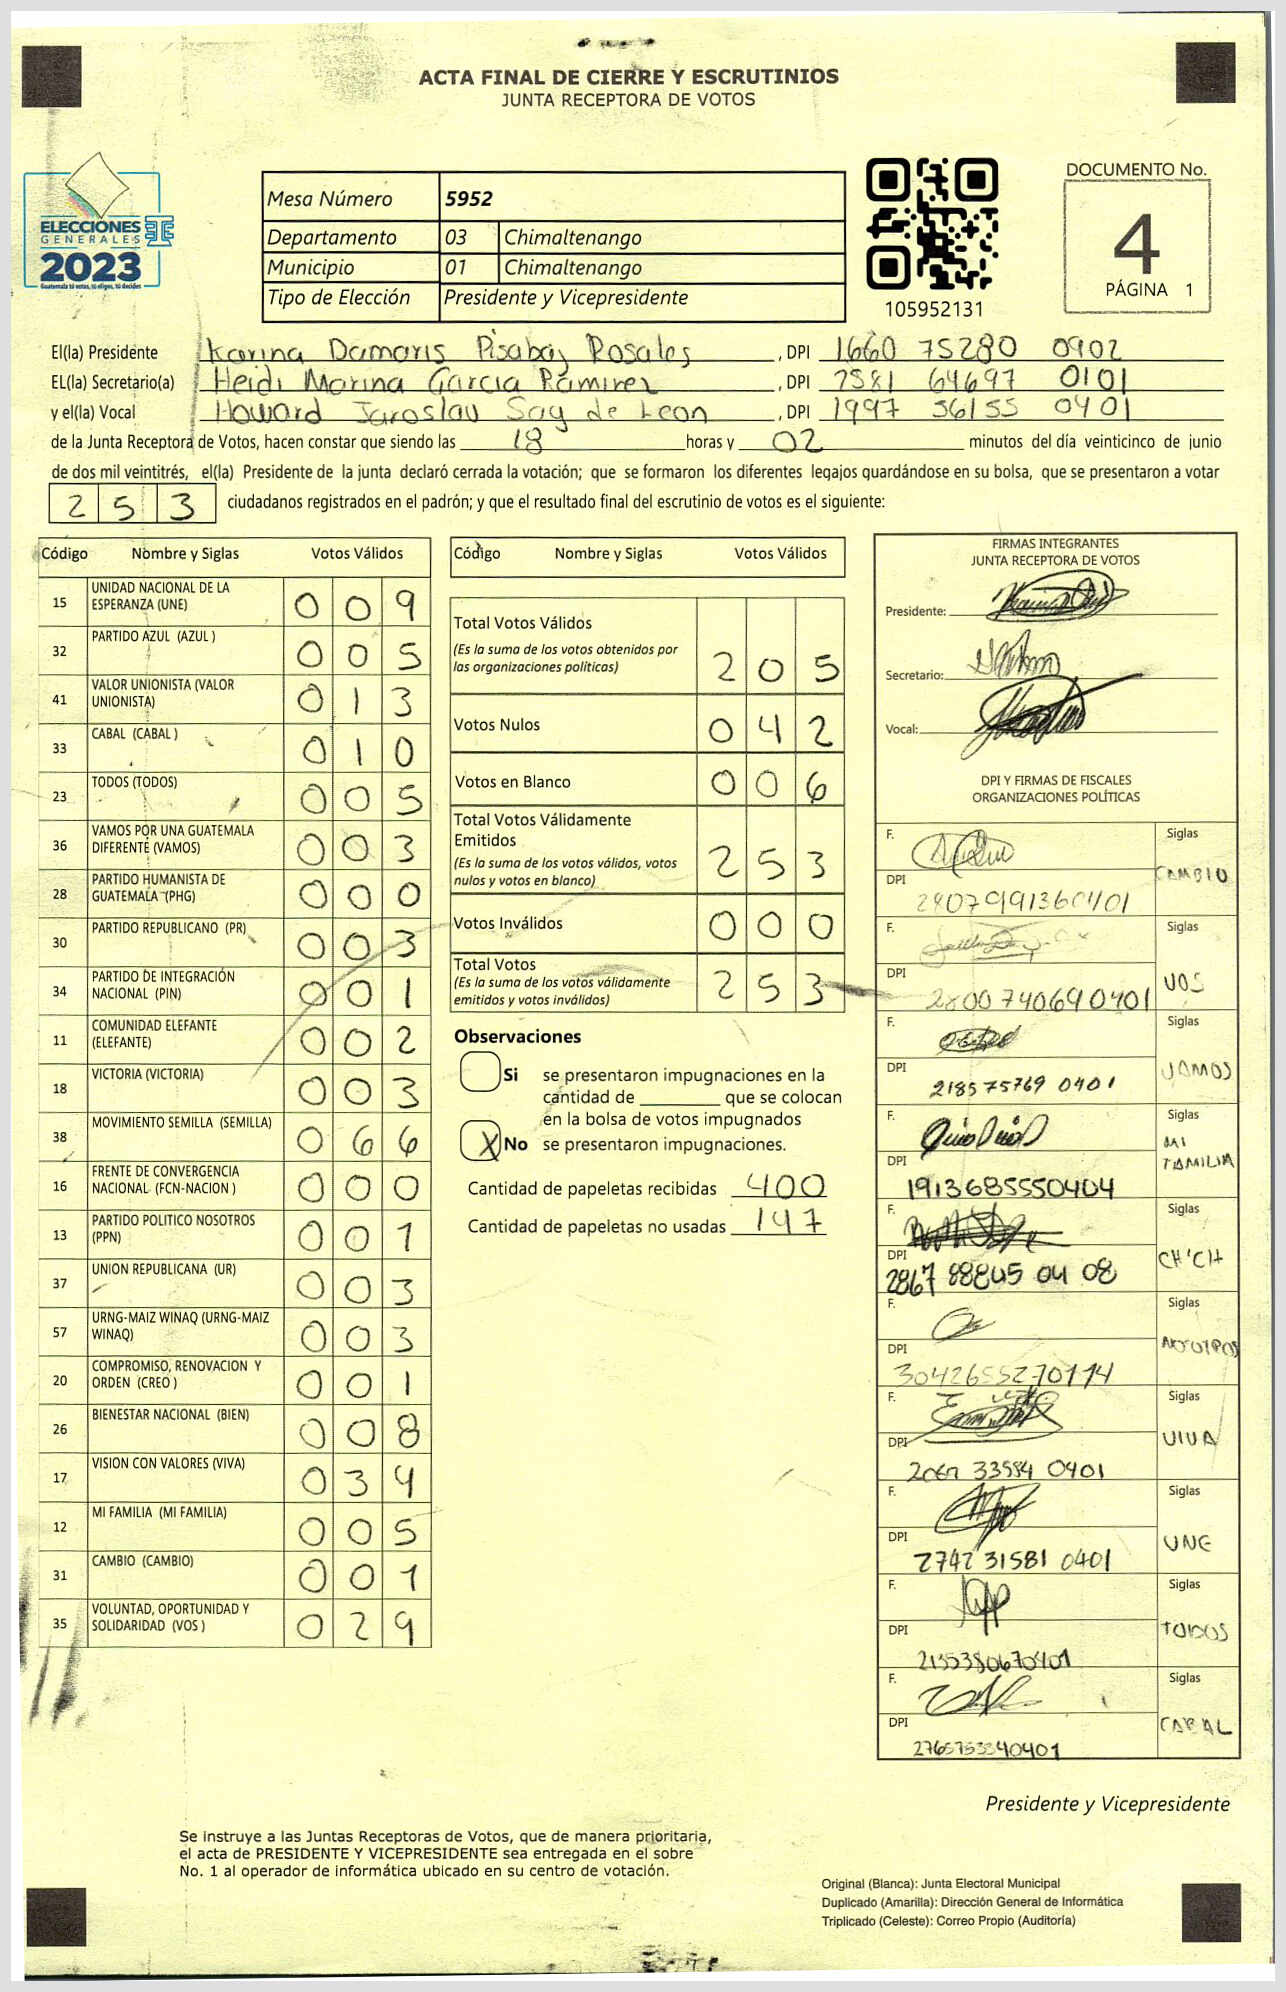 ACTA FINAL DE CIERRE Y ESCRUTINIOS
JUNTA RECEPTORA DE VOTOS
ELECCIONES
GENERALES
2023
Guatemala tú votas, tú eliges, tú decides
Mesa Número 5952
Departamento 03 Chimaltenango
Municipio 01 Chimaltenango
Tipo de Elección Presidente y Vicepresidente
105952131
DOCUMENTO No.
4
PÁGINA 1
El(la) Presidente Karina Damaris Pisabaj Rosales, DPI 1660 75280 0902
EL(la) Secretario(a) Heidi Marina Garcia Ramirez, DPI 2581 64697 0101
y el(la) Vocal Howard Jaroslav Say de Leon, DPI 1997 56155 0401
de la Junta Receptora de Votos, hacen constar que siendo las 18 horas y 02 minutos del día veinticinco de junio
de dos mil veintitrés, el(la) Presidente de la junta declaró cerrada la votación; que se formaron los diferentes legajos guardándose en su bolsa, que se presentaron a votar
253 ciudadanos registrados en el padrón; y que el resultado final del escrutinio de votos es el siguiente:
Código Nombre y Siglas Votos Válidos
15 UNIDAD NACIONAL DE LA ESPERANZA (UNE) 009
32 PARTIDO AZUL (AZUL ) 005
41 VALOR UNIONISTA (VALOR UNIONISTA) 013
33 CABAL (CABAL ) 010
23 TODOS (TODOS) 005
36 VAMOS POR UNA GUATEMALA DIFERENTE (VAMOS) 003
28 PARTIDO HUMANISTA DE GUATEMALA (PHG) 000
30 PARTIDO REPUBLICANO (PR) 003
34 PARTIDO DE INTEGRACIÓN NACIONAL (PIN) 001
11 COMUNIDAD ELEFANTE (ELEFANTE) 002
18 VICTORIA (VICTORIA) 003
38 MOVIMIENTO SEMILLA (SEMILLA) 066
16 FRENTE DE CONVERGENCIA NACIONAL (FCN-NACION ) 000
13 PARTIDO POLITICO NOSOTROS (PPN) 001
37 UNION REPUBLICANA (UR) 003
57 URNG-MAIZ WINAQ (URNG-MAIZ WINAQ) 003
20 COMPROMISO, RENOVACION Y ORDEN (CREO ) 001
26 BIENESTAR NACIONAL (BIEN) 008
17 VISION CON VALORES (VIVA) 034
12 MI FAMILIA (MI FAMILIA) 005
31 CAMBIO (CAMBIO) 001
35 VOLUNTAD, OPORTUNIDAD Y SOLIDARIDAD (VOS ) 029
Código Nombre y Siglas Votos Válidos
Total Votos Válidos
(Es la suma de los votos obtenidos por las organizaciones políticas) 205
Votos Nulos 042
Votos en Blanco 006
Total Votos Válidamente Emitidos
(Es la suma de los votos válidos, votos nulos y votos en blanco) 253
Votos Inválidos 000
Total Votos
(Es la suma de los votos válidamente emitidos y votos inválidos) 253
Observaciones
Si se presentaron impugnaciones en la
cantidad de ________ que se colocan
en la bolsa de votos impugnados
X No se presentaron impugnaciones.
Cantidad de papeletas recibidas 400
Cantidad de papeletas no usadas 147
FIRMAS INTEGRANTES
JUNTA RECEPTORA DE VOTOS
Presidente:
Secretario:
Vocal:
DPI Y FIRMAS DE FISCALES
ORGANIZACIONES POLÍTICAS
F. Siglas
DPI 2807991360401 CAMBIO
F. Siglas
DPI 2800740690401 VOS
F. Siglas
DPI 218575769 0401 VAMOS
F. Siglas
DPI 1913685550404 MI FAMILIA
F. Siglas
DPI 2867 88845 04 08 CH'CH
F. Siglas
DPI 3042655270114 NOSOTROS
F. Siglas
DPI 2067 33584 0401 VIVA
F. Siglas
DPI 2742 31581 0401 UNE
F. Siglas
DPI 2135380670401 TODOS
F. Siglas
DPI 2765753340401 CABAL
Presidente y Vicepresidente
Se instruye a las Juntas Receptoras de Votos, que de manera prioritaria,
el acta de PRESIDENTE Y VICEPRESIDENTE sea entregada en el sobre
No. 1 al operador de informática ubicado en su centro de votación.
Original (Blanca): Junta Electoral Municipal
Duplicado (Amarilla): Dirección General de Informática
Triplicado (Celeste): Correo Propio (Auditoría)